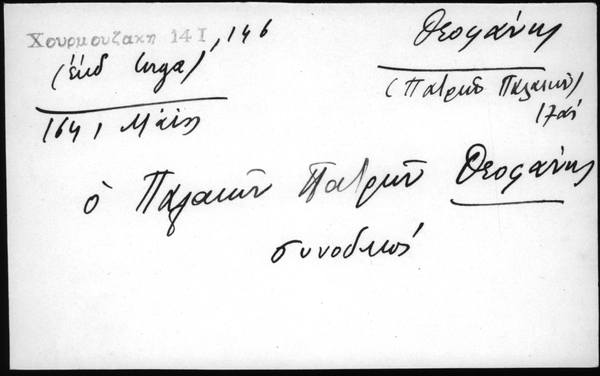 Χουρμουζακη 14 I, 146
(έκδ Iorga)
1641, Μάϊος
Θεοφάνης
(Πατρῶν Παλαιῶν)
17ος
ὁ Παλαιῶν Πατρῶν Θεοφάνης
συνοδικός